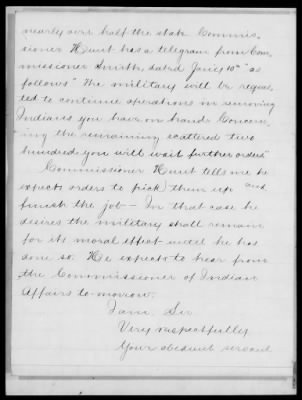 nearly over half the state Commis-
sioner Hunt has a telegram from Com-
missioner Smith, dated Jan'y 10th "as
follows" "The military will be reques-
ted to continue operations in removing
Indians you have on hand. Concern-
"ing the remaining scattered two
hundred you will wait further orders"
Commissioner Hunt tells me he
expects orders to pick them up and
finish the job – In that case he
desires the military shall remain
for its moral effect until he has
done so. He expects to hear from
the Commissioner of Indian
Affairs to-morrow.
I am Sir
Very respectfully
Your obedient servant